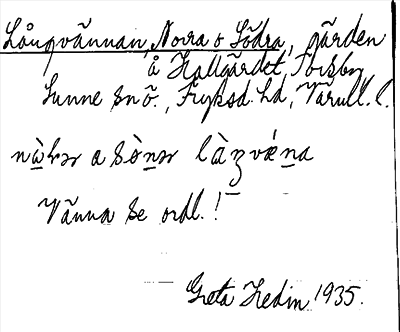 Långvännan, Norra o Södra, gården
å Hallgårdet, Torsby,
Sunne sn ö., Fryksd. hd, Värml. l.
Vänna se ordl.!
Greta Hedin 1935.